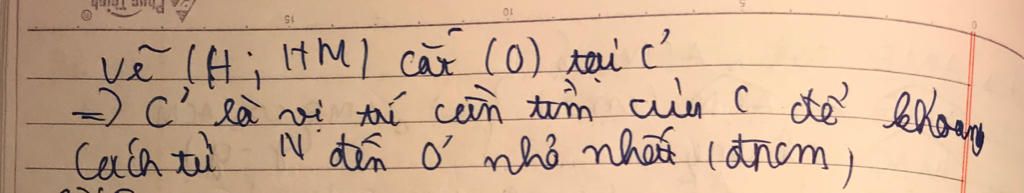 Vẽ (H; HM) cắt (O) tại C'
=> C' là vị trí cần tìm của C để khoảng
Cách từ N đến O' nhỏ nhất (đpcm)